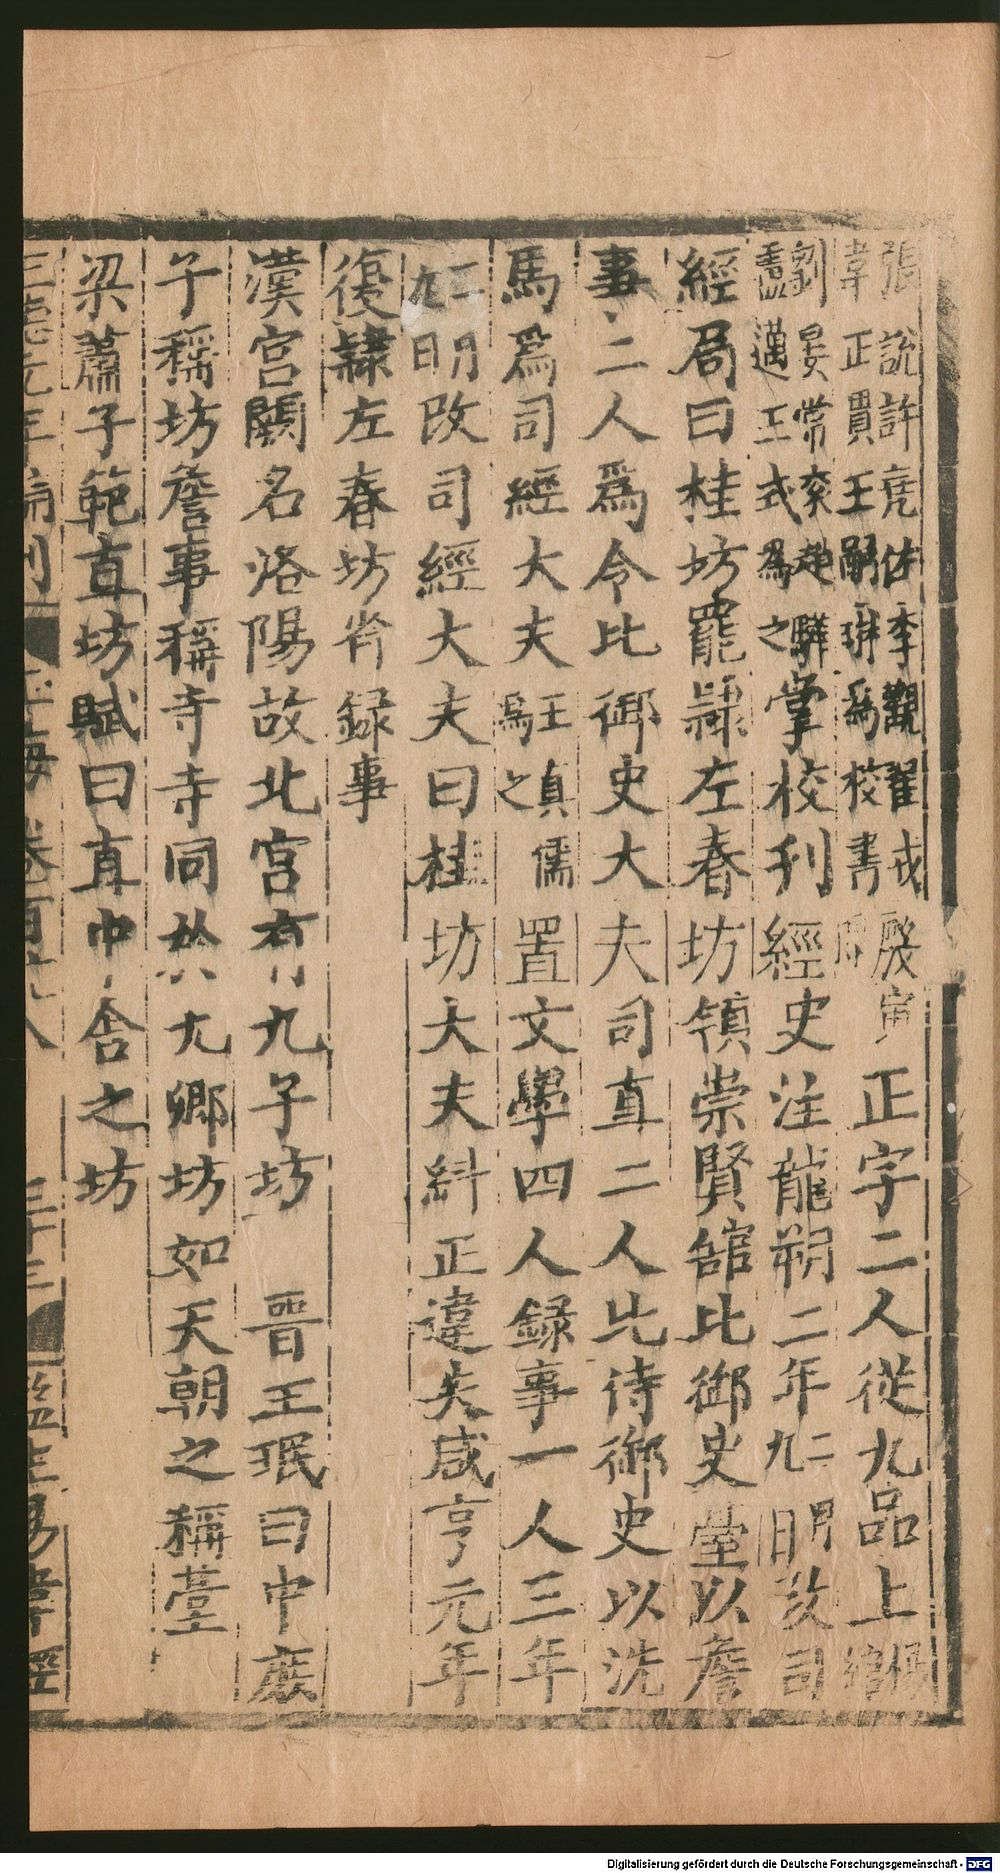 張說許堯佐李觀崔戎殷寅正字二人從九品上楊綰
韋正貫王嗣琳為校書
劉晏常袞趙驊掌校刋經史注龍朔二年二月九日改司
盧邁王式為之
經局曰桂坊罷隷左春坊領崇賢舘比御史臺以詹
事二人爲令比御史大夫司直二人比侍御史以洗
馬爲司經大夫王真儒駐爲之置文學四人録事一人三年
二月九日改司經大夫曰桂坊大夫糾正違失咸亨元年
復隷左春坊省録事
漢宫闕名洛陽故北宫有九子坊 晉王珉曰中庶
子稱坊詹事稱寺寺同於九卿坊如天朝之稱臺
梁蕭子範直坊賦曰直中舍之坊
元年 刋 玉海卷百 三十三 監生馬 經
Digitalisierung gefördert durch die Deutsche Forschungsgemeinschaft - DFG